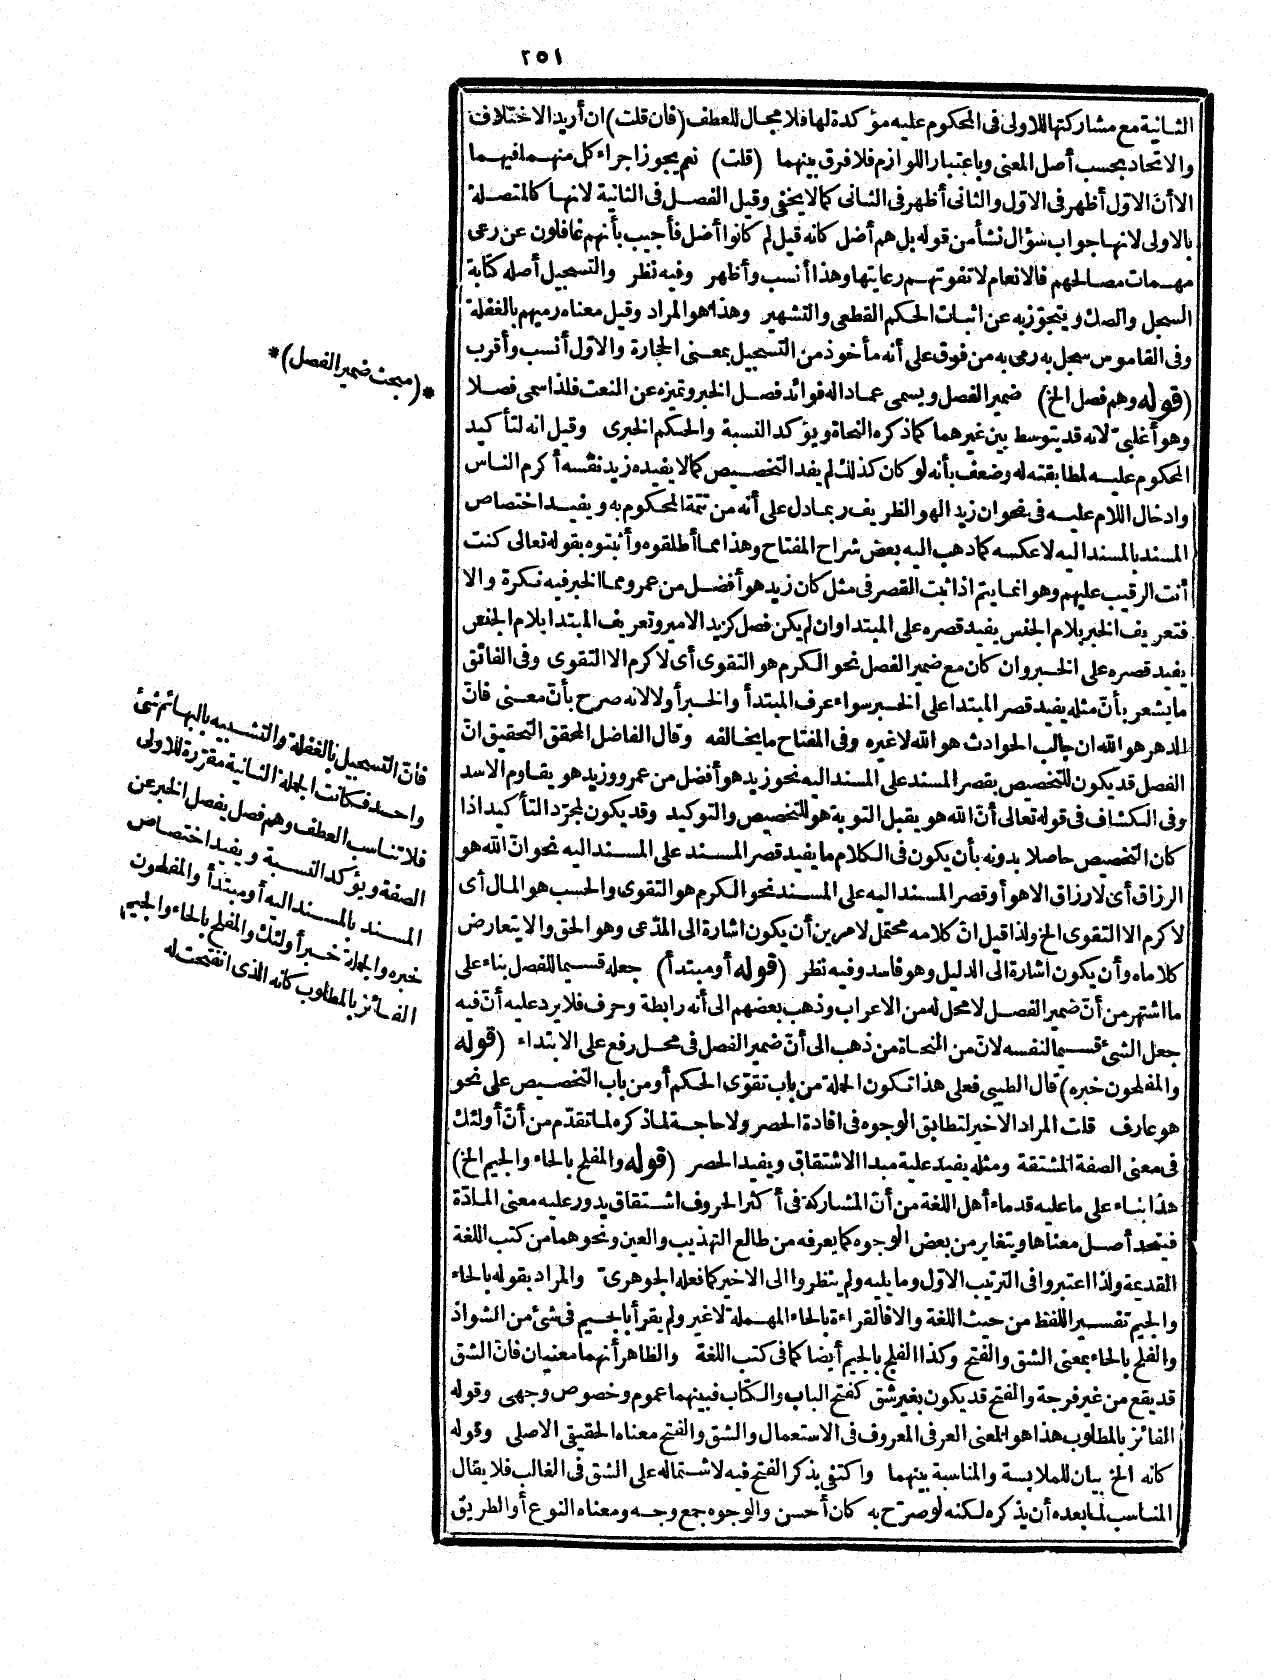 ٢٥١
الثانية مع مشاركتها للاولى فى المحكوم عليه مؤكدة لها فلا مجال للعطف (فان قلت) ان أريد الاختلاف
والاتحاد بحسب أصل المعنى وباعتبار اللوازم فلا فرق بينهما (قلت) نعم يجوز اجراء كل منهما فيهما
الا أن الاوّل أظهر فى الاوّل والثانى أظهر فى الثانى كما لا يخفى وقيل الفصل فى الثانية لانها كالمتصلة
بالاولى لانها جواب سؤال نشأ من قوله بل هم أضل كانه قيل لم كانوا أضل فأجيب بأنهم غافلون عن رعى
مهمات مصالحهم فالانعام لا تفوتهم رعايتها وهذا أنسب وأظهر وفيه نظر والتسجيل أصله كتابة
السجل والصك ويتجوّز به عن اثبات الحكم القطعى والتشهير وهذا هو المراد وقيل معناه رميهم بالغفلة
وفى القاموس سجل به رمى به من فوق على أنه مأخوذ من التسجيل بمعنى الحجارة والاوّل أنسب وأقرب
(قوله وهم فصل الخ) ضمير الفصل ويسمى عمادا له فوائد فصل الخبر وتميزه عن النعت فلذا سمى فصلا
وهو أغلبىّ لانه قد يتوسط بين غيرهما كما ذكره النحاة ويؤكد النسبة والحكم الخبرى وقيل انه لتأكيد
المحكوم عليه لمطابقته له وضعف بأنه لو كان كذلك لم يفد التخصيص كما لا يفيده زيد نفسه أكرم الناس
وادخال اللام عليه فى نحو ان زيد الهو الظريف ربما دل على أنه من تتمة المحكوم به ويفيد اختصاص
المسند بالمسند اليه لا عكسه كما ذهب اليه بعض شراح المفتاح وهذا مما أطلقوه وأثبتوه بقوله تعالى كنت
أنت الرقيب عليهم وهو انما يتم اذا ثبت القصر فى مثل كان زيد هو أفضل من عمرو مما الخبر فيه نكرة والا
فتعريف الخبر بلام الجنس يفيد قصره على المبتدا وان لم يكن فصل كزيد الامير وتعريف المبتدا بلام الجنس
يفيد قصره على الخبر وان كان مع ضمير الفصل نحو الكرم هو التقوى أى لا كرم الا التقوى وفى الفائق
ما يشعر بأنّ مثله يفيد قصر المبتدا على الخبر سواء عرف المبتدأ والخبر أو لا لانه صرح بأنّ معنى فانّ
الدهر هو الله ان جالب الحوادث هو الله لا غيره وفى المفتاح ما يخالفه وقال الفاضل المحقق التحقيق انّ
الفصل قد يكون للتخصيص بقصر المسند على المسند اليه نحو زيد هو أفضل من عمرو وزيد هو يقاوم الاسد
وفى الكشاف فى قوله تعالى أنّ الله هو يقبل التوبة هو للتخصيص والتوكيد وقد يكون لمجرّد التأكيد اذا
كان التخصيص حاصلا بدونه بأن يكون فى الكلام ما يفيد قصر المسند على المسند اليه نحو انّ الله هو
الرزاق أى لا رزاق الا هو أو قصر المسند اليه على المسند نحو الكرم هو التقوى والحسب هو المال أى
لا كرم الا التقوى الخ ولذا قيل انّ كلامه محتمل لامرين أن يكون اشارة الى المدّعى وهو الحق والا يتعارض
كلاماه وأن يكون اشارة الى الدليل وهو فاسد وفيه نظر (قوله أو مبتدأ) جعله قسيما للفصل بناء على
ما اشتهر من أنّ ضمير الفصل لا محل له من الاعراب وذهب بعضهم الى أنه رابطة وحرف فلا يرد عليه أنّ فيه
جعل الشئ قسيما لنفسه لانّ من النحاة من ذهب الى أنّ ضمير الفصل فى محل رفع على الابتداء (قوله
والمفلحون خبره) قال الطيبى فعلى هذا تكون الجملة من باب تقوّى الحكم أو من باب التخصيص على نحو
هو عارف قلت المراد الاخير لتطابق الوجوه فى افادة الحصر ولا حاجة لما ذكره لما تقدّم من أنّ أولئك
فى معنى الصفة المشتقة ومثله يفيد علية مبدا الاشتقاق ويفيد الحصر (قوله والمفلح بالحاء والجيم الخ)
هذا بناء على ما عليه قدماء أهل اللغة من أنّ المشاركة فى أكثر الحروف اشتقاق يدور عليه معنى المادّة
فيتحد أصل معناها ويتغاير من بعض الوجوه كما يعرفه من طالع التهذيب والعين ونحوهما من كتب اللغة
القديمة ولذا اعتبروا فى الترتيب الاوّل وما يليه ولم ينظروا الى الاخير كما فعله الجوهرىّ والمراد بقوله بالحاء
والجيم تفسير اللفظ من حيث اللغة والا فالقراءة بالحاء المهملة لا غير ولم يقرأ بالجيم فى شئ من الشواذ
والفلح بالحاء بمعنى الشق والفتح وكذا الفلج بالجيم أيضا كما فى كتب اللغة والظاهر أنهما معنيان فانّ الشق
قد يقع من غير فرجة والفتح قد يكون بغير شق كفتح الباب والكتاب فبينهما عموم وخصوص وجهى وقوله
الفائز بالمطلوب هذا هو المعنى العرفى المعروف فى الاستعمال والشق والفتح معناه الحقيقى الاصلى وقوله
كانه الخ بيان للملابسة والمناسبة بينهما واكتفى بذكر الفتح فيه لاشتماله على الشق فى الغالب فلا يقال
المناسب لما بعده أن يذكره لكنه لو صرّح به كان أحسن والوجوه جمع وجه ومعناه النوع أو الطريق
*(مبحث ضمير الفصل)*
فانّ التسجيل بالغفلة والتشبيه بالبهائم شئ
واحد فكانت الجملة الثانية مقرّرة للاولى
فلا تناسب العطف وهم فصل يفصل الخبر عن
الصفة ويؤكد النسبة ويفيد اختصاص
المسند بالمسند اليه أو مبتدأ والمفلحون
خبره والجملة خبر أولئك والمفلح بالحاء والجيم
الفائز بالمطلوب كانه الذى انفتحت له